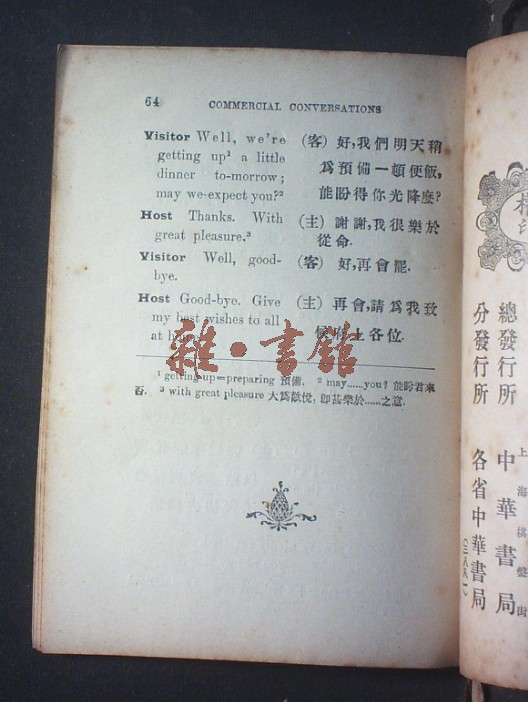 64 COMMERCIAL CONVERSATIONS
Visitor Well, we're
getting up¹ a little
dinner to-morrow;
may we expect you?²
(客) 好,我們明天稍
爲預備一頓便飯,
能盼得你光降麽?
Host Thanks. With
great pleasure.³
(主) 謝謝,我很樂於
從命.
Visitor Well, good-
bye.
(客) 好,再會罷.
Host Good-bye. Give
my best wishes to all
at
(主) 再會,請爲我致
候府上各位.
雜·書館
¹ getting up=preparing 預備. ² may......you? 能盼君來
否. ³ with great pleasure 大爲歡悅, 卽甚樂於......之意.
總發行所 上海棋盤街 中華書局
分發行所 各省中華書局
(三八八一)